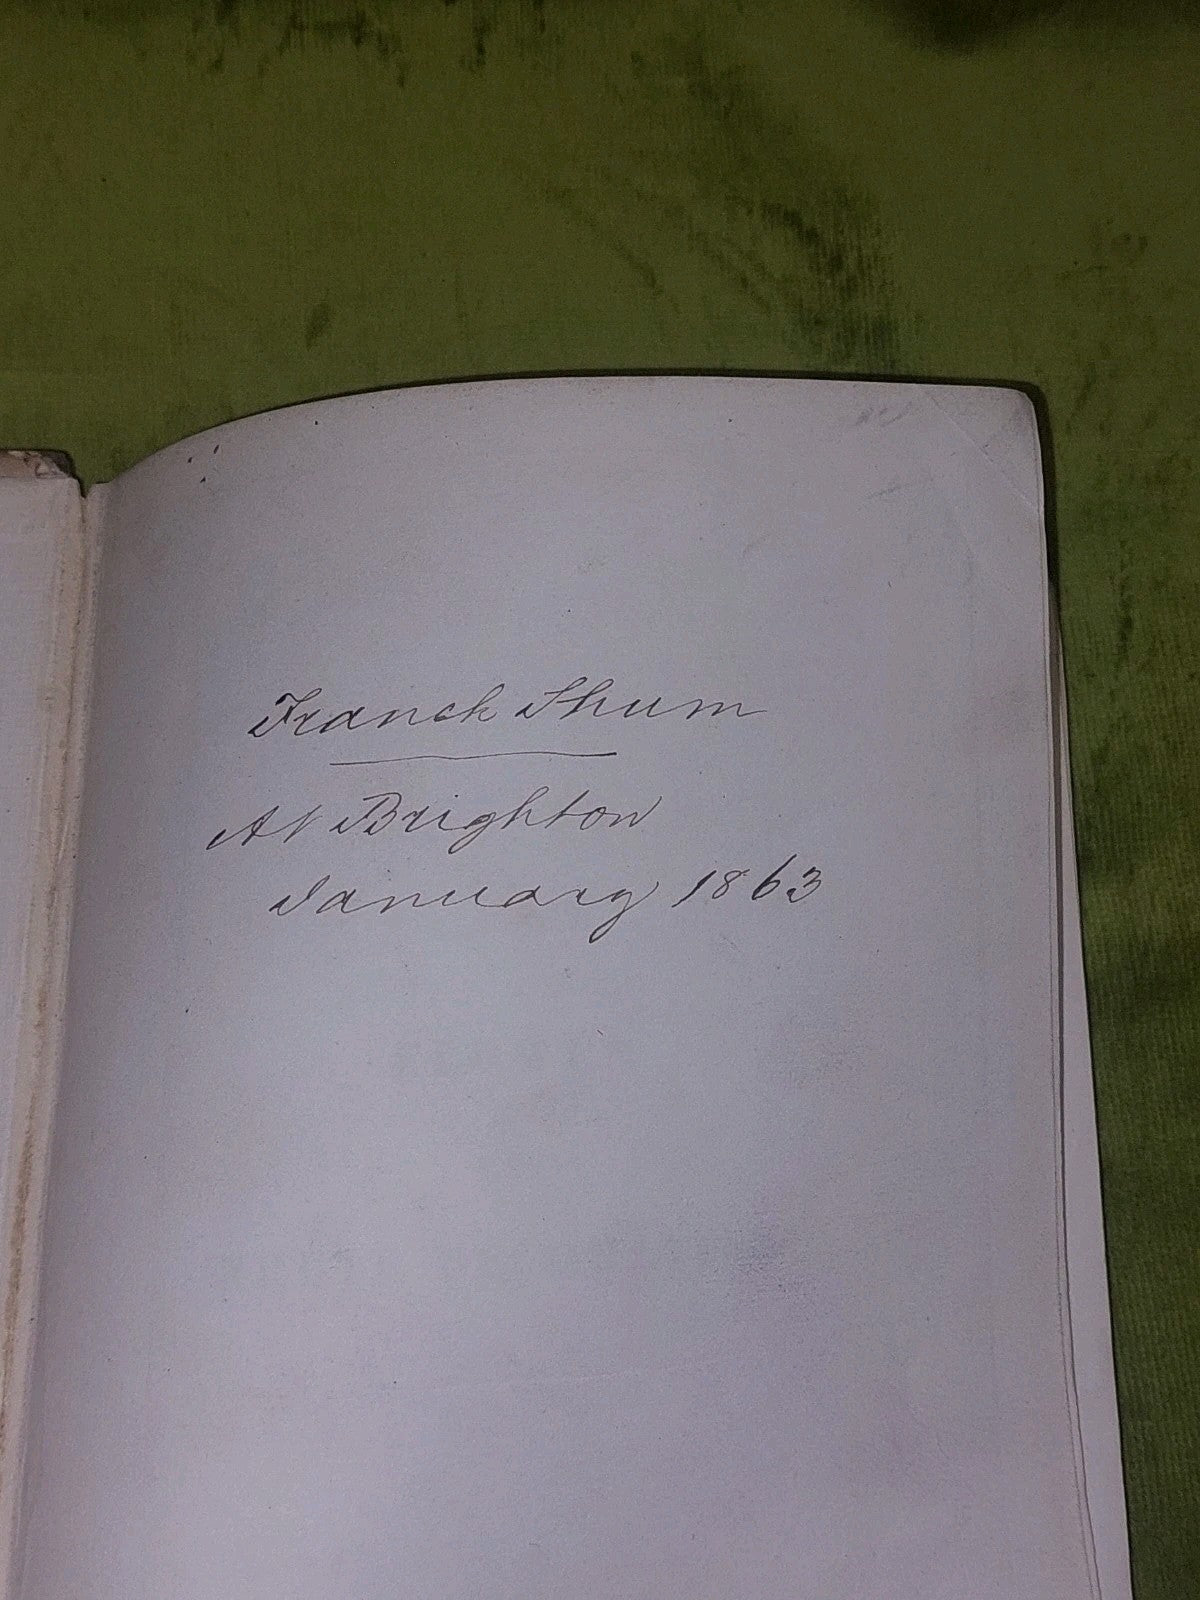 Franck Shum
At Brighton
January 1863